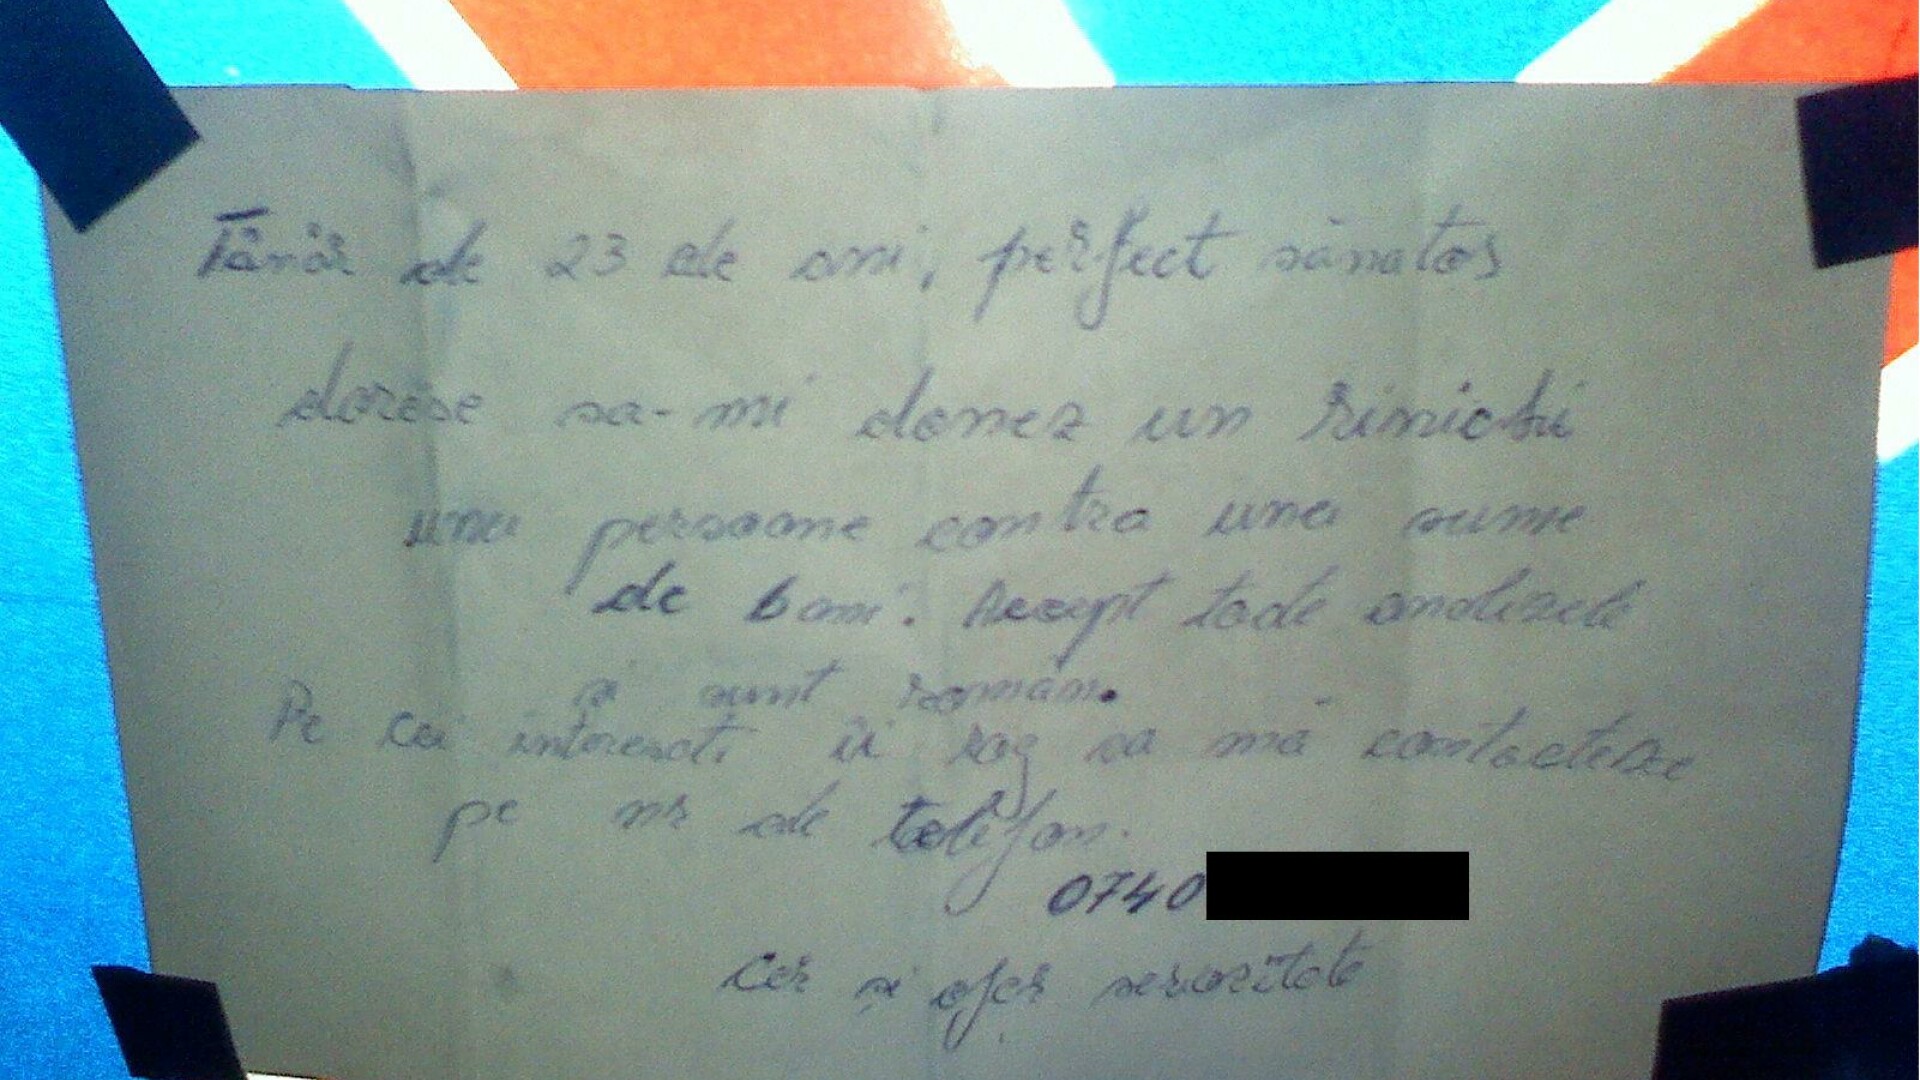 Tânăr de 23 de ani, perfect sănatos
doresc sa-mi donez un rinichi
unei persoane contra unei sume
de bani. Accept toate analizele
si sunt român.
Pe cei interesati îi rog sa mă contacteze
pe nr de telefon.
0740
Cer și ofer seriozitate